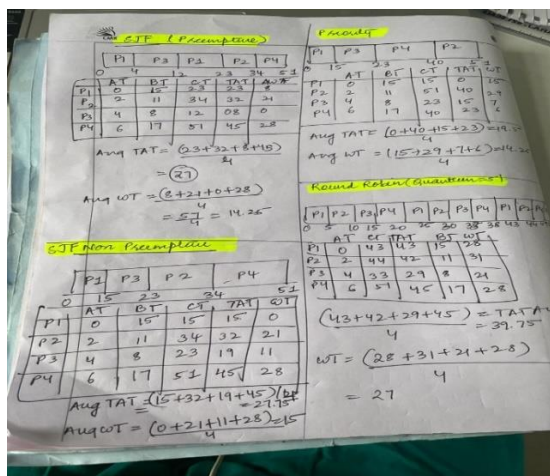 SJF (Preemptive)
P1 P3 P1 P2 P4
0 4 12 23 34 51
AT BT CT TAT
P1 0 15 23 23 8
P2 2 11 34 32 21
P3 4 8 12 08 0
P4 6 17 51 45 28
Avg TAT = (23+32+8+45)
4
= 27
Avg WT = (8+21+0+28)
4
= 57/4 = 14.25
SJF Non Preemptive
P1 P3 P2 P4
0 15 23 34 51
AT BT CT TAT WT
P1 0 15 15 15 0
P2 2 11 34 32 21
P3 4 8 23 19 11
P4 6 17 51 45 28
Avg TAT = (15+32+19+45)
= 27.75
Avg WT = (0+21+11+28) = 15
4
Priority
P1 P3 P4 P2
0 15 23 40 51
AT BT CT TAT WT
P1 0 15 15 0 15
P2 2 11 51 40 29
P3 4 8 23 15 7
P4 6 17 40 23 6
Avg TAT = (0+40+15+23)
4
Avg WT = (15+29+7+6) = 14.25
4
Round Robin (Quantum = 5)
P1 P2 P3 P4 P1 P2 P3 P4 P1 P2 P4
0 5 10 15 20 25 30
AT CT TAT BT WT
P1 0 43 43 15 28
P2 2 44 42 11 31
P3 4 33 29 8 21
P4 6 51 45 17 28
(43+42+29+45) = TAT
4 = 39.75
WT = (28 + 31 + 21 + 28)
4
= 27